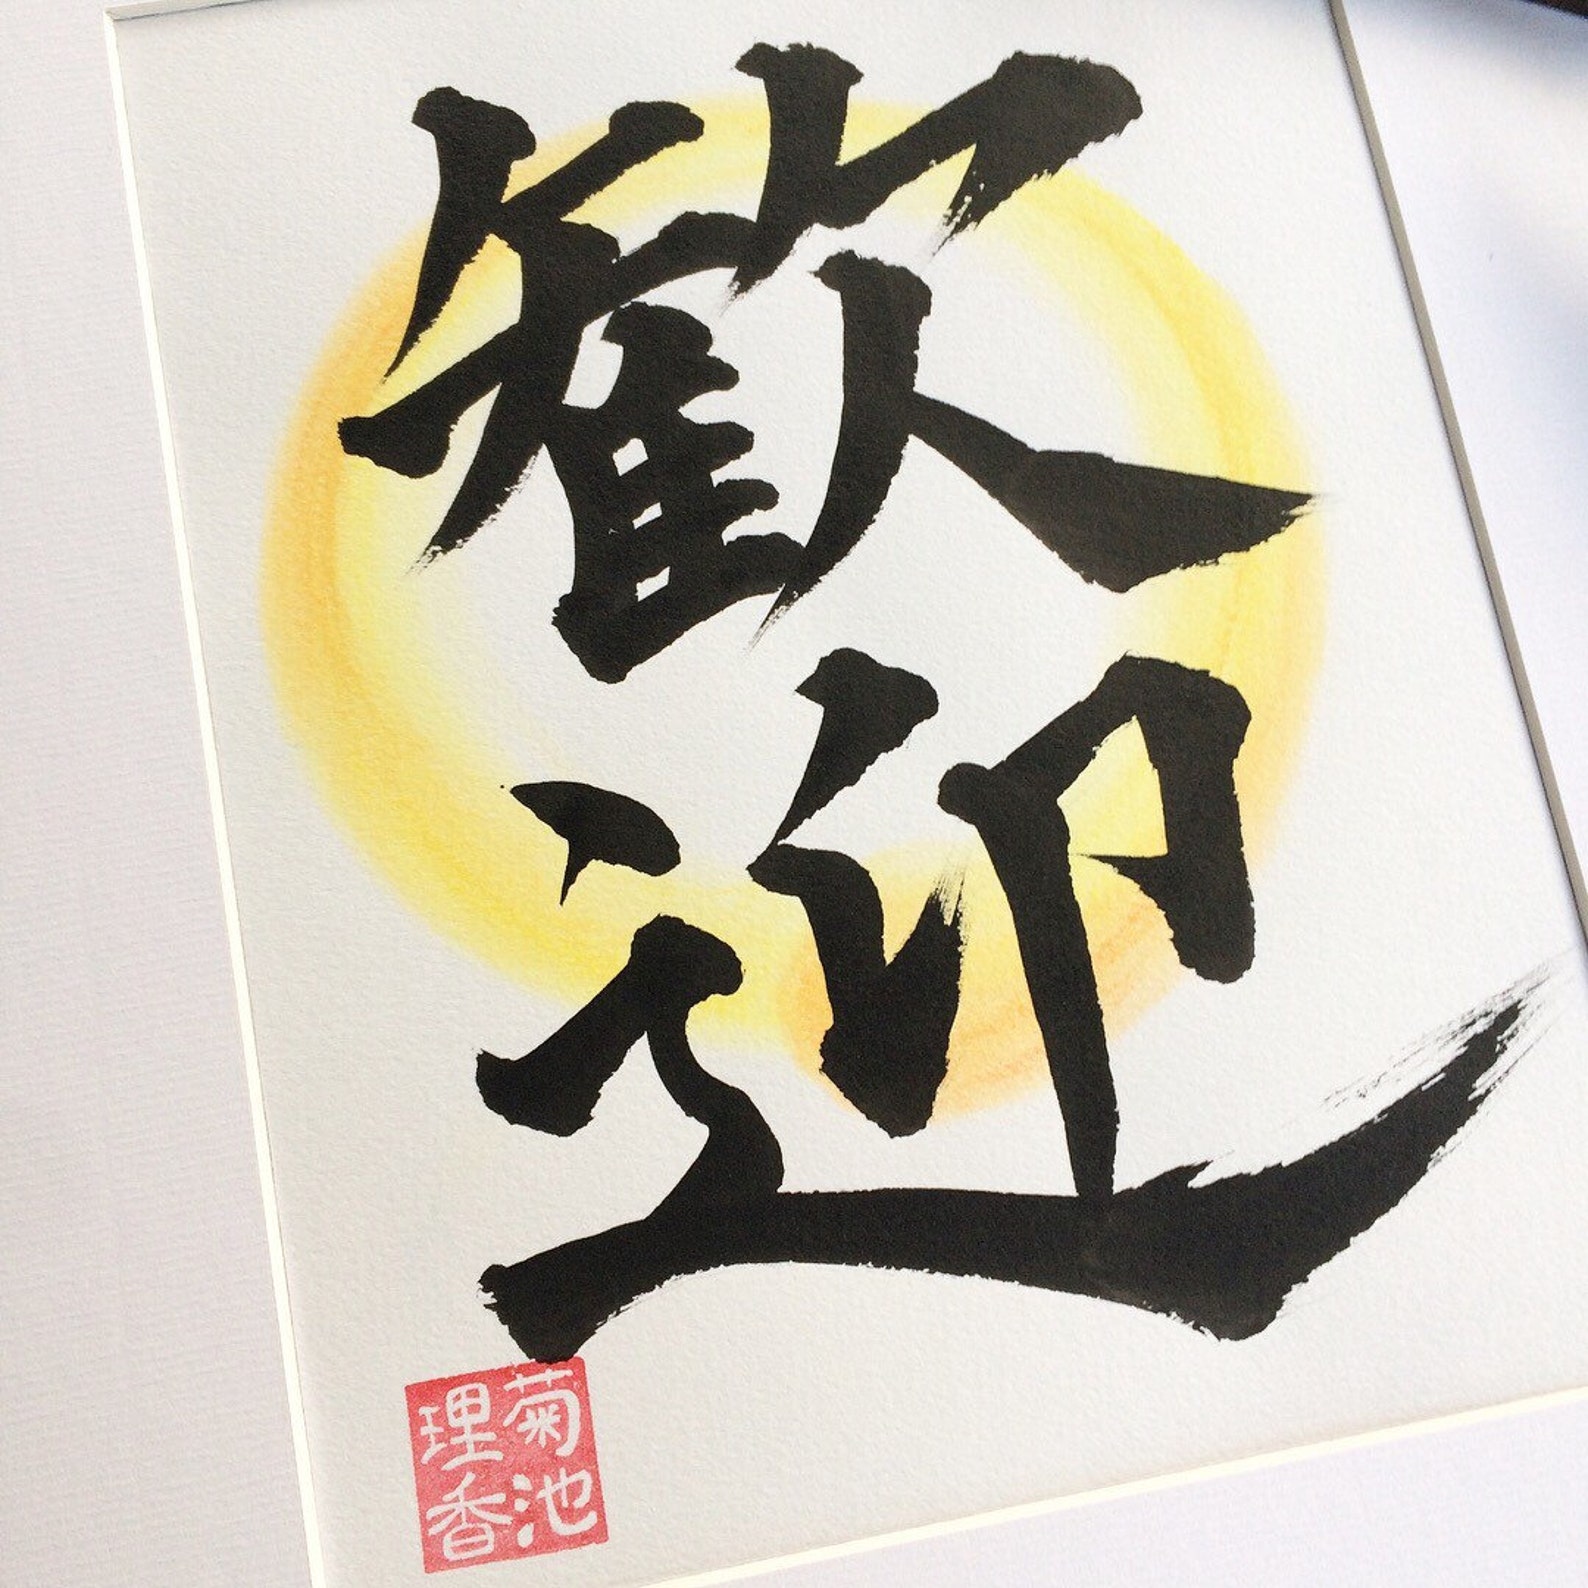 歓迎
菊池
理香